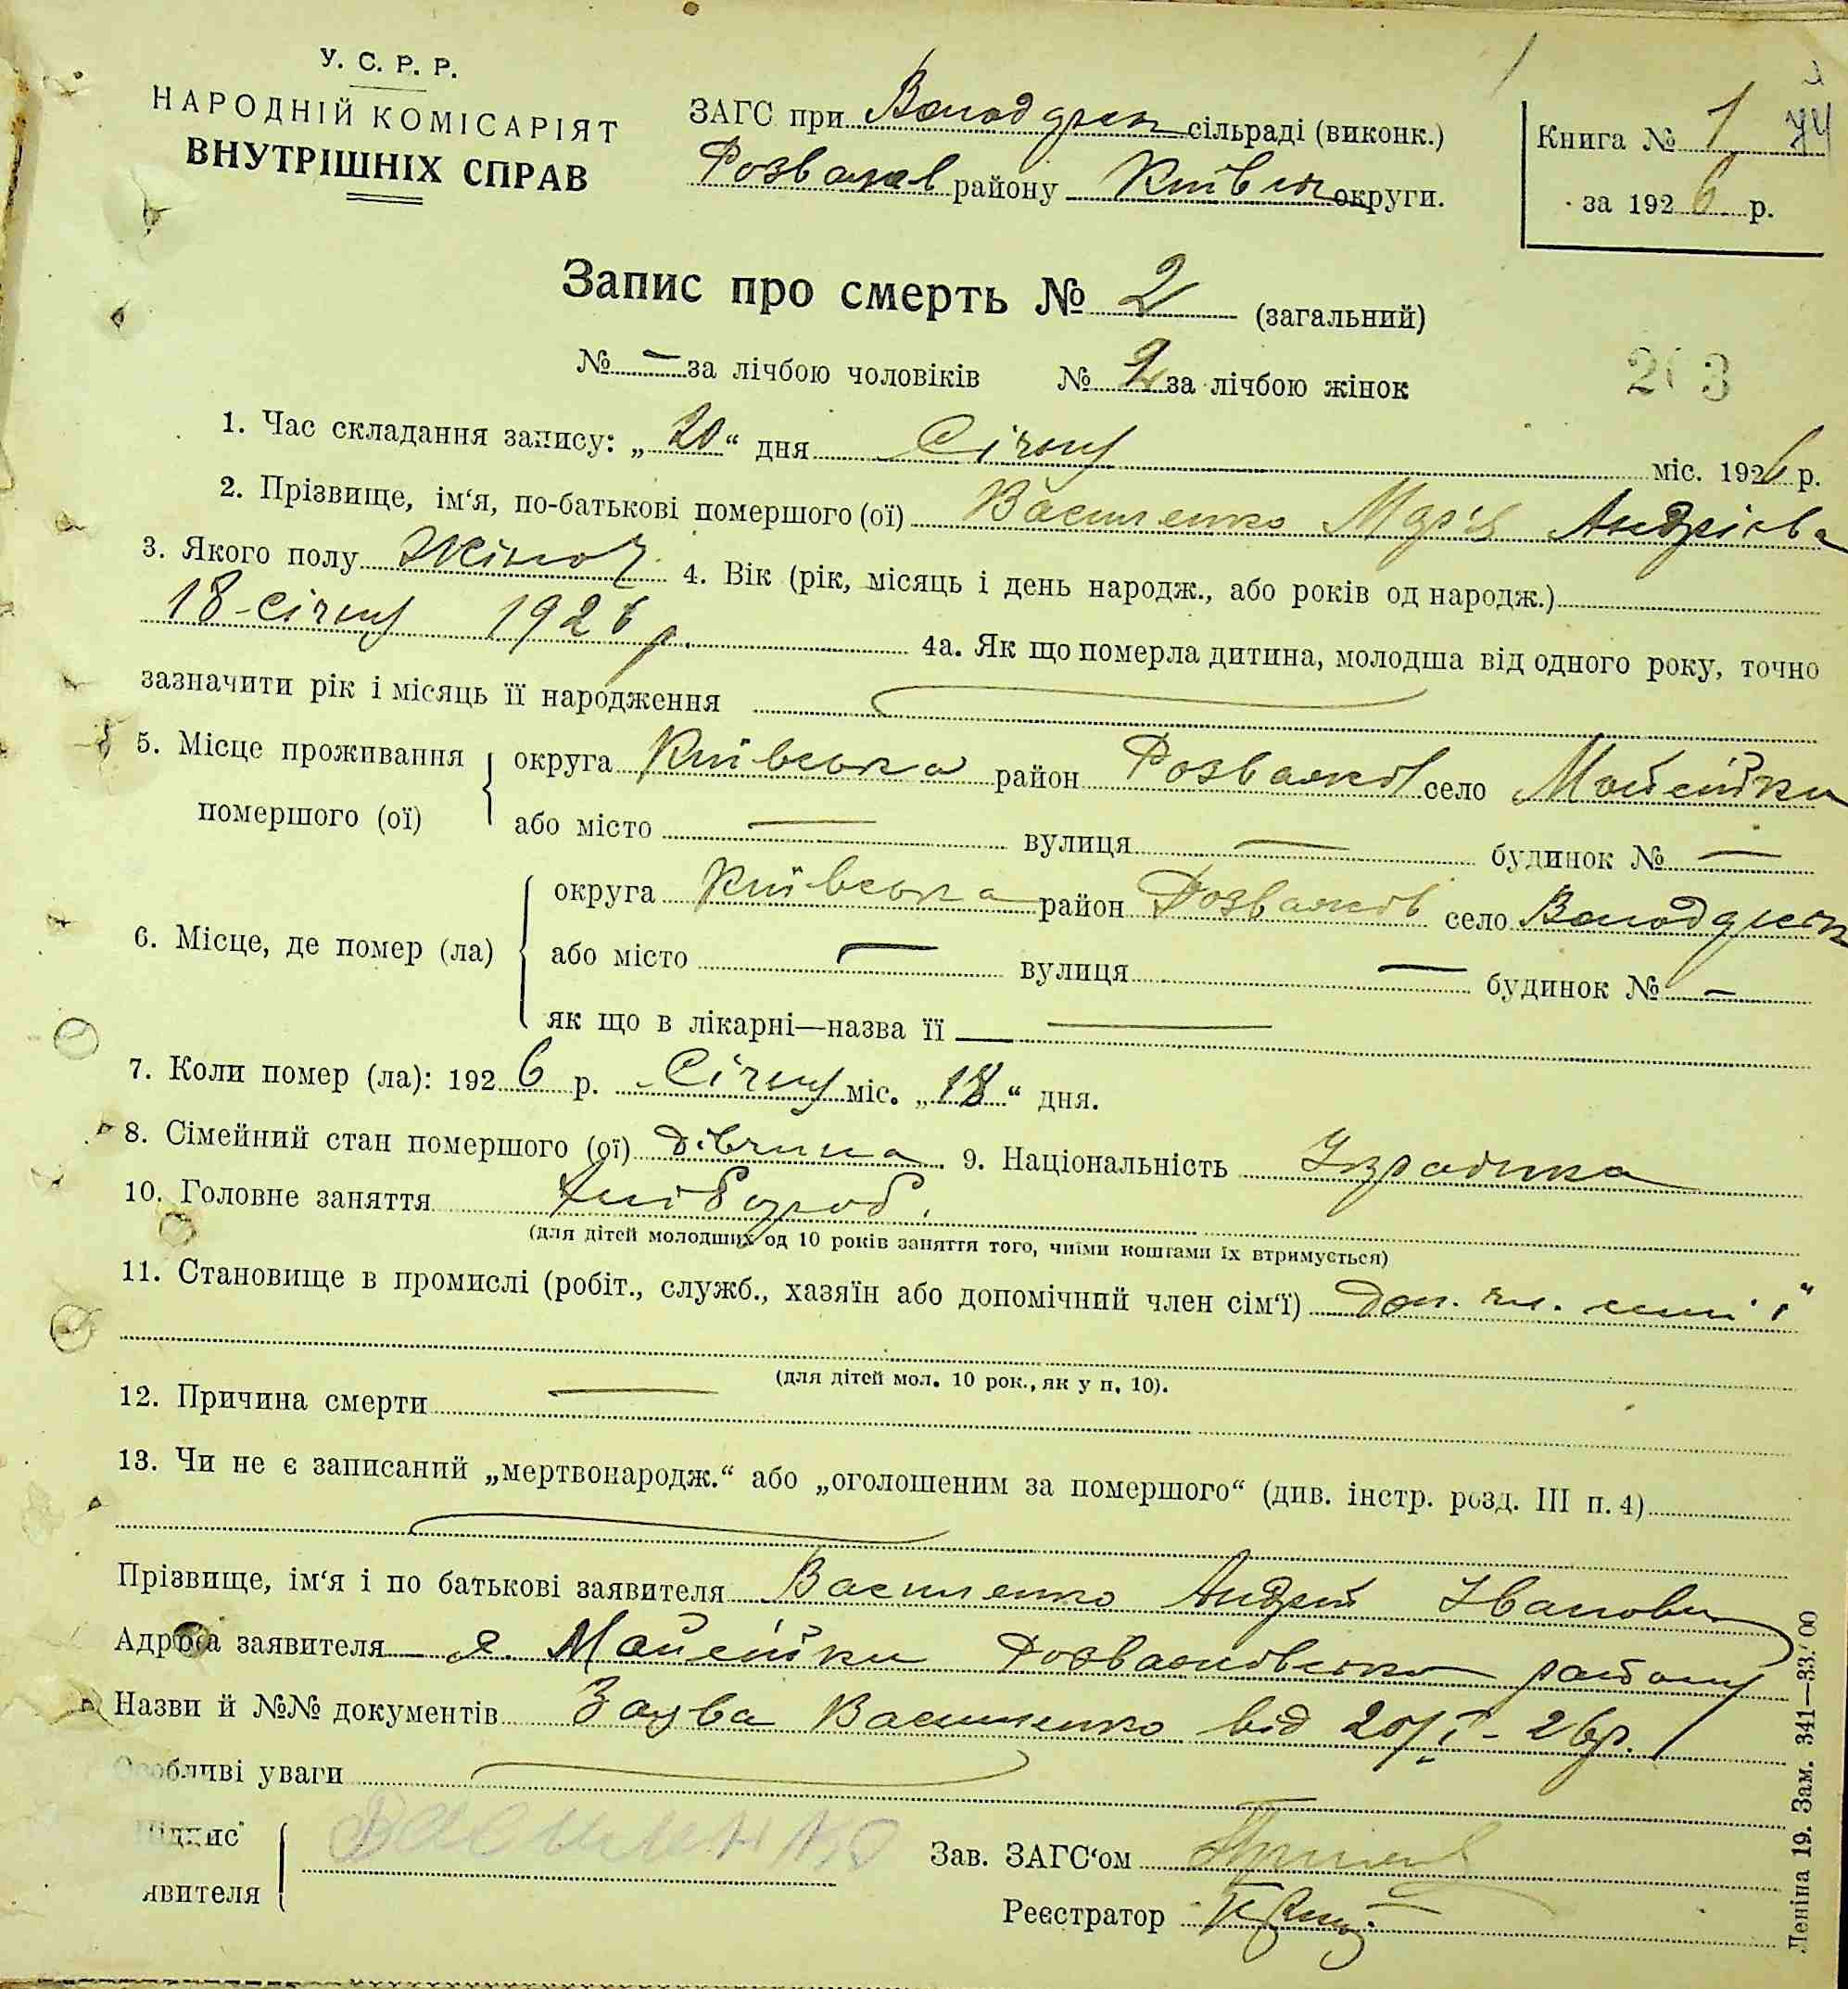 У. С. Р. Р.
НАРОДНІЙ КОМІСАРІЯТ
ВНУТРІШНІХ СПРАВ
ЗАГС при сільраді (виконк.)
Розважів району Київськ округи.
Книга № 1
за 1926 р.
Запис про смерть № 2 (загальний)
№ — за лічбою чоловіків № 2 за лічбою жінок
1. Час складання запису: „20“ дня Січня міс. 1926 р.
2. Прізвище, ім‘я, по-батькові помершого (ої) Василенко Марія Андрієва
3. Якого полу Жіноч. 4. Вік (рік, місяць і день народж., або років од народж.)
18-січня 1926 р. 4а. Як що померла дитина, молодша від одного року, точно
зазначити рік і місяць її народження —
5. Місце проживання помершого (ої)
округа Київська район Розважів село Мойсійки
або місто — вулиця — будинок № —
6. Місце, де помер (ла)
округа Київська район Розважів село
або місто — вулиця — будинок № —
як що в лікарні—назва її —
7. Коли помер (ла): 1926 р. Січня міс. „18“ дня.
8. Сімейний стан помершого (ої) дівчина. 9. Національність Українка
10. Головне заняття Хлібороб.
(для дітей молодших од 10 років заняття того, чиїми коштами їх втримується)
11. Становище в промислі (робіт., служб., хазяїн або допомічний член сім‘ї) доп. чл. сим'ї
(для дітей мол. 10 рок., як у п. 10).
12. Причина смерти —
13. Чи не є записаний „мертвонародж.“ або „оголошеним за помершого“ (див. інстр. розд. III п. 4)
—
Прізвище, ім‘я і по батькові заявителя Василенко Андрій Іванович
Адреса заявителя с. Мойсійки Розважівського району
Назви й №№ документів Заява Василенко від 20/I - 26р.
Особливі уваги —
Підпис заявителя Василенко
Зав. ЗАГС‘ом
Реєстратор
Леніна 19. Зам. 341—33.